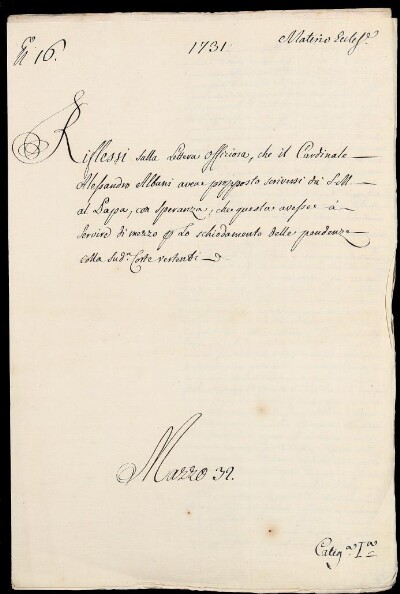 N.º 16.
1731.
Materie Eccles.e
Riflessi sulla Lettera officiosa, che il Cardinale
Alessandro Albani aveva proposto scriversi da S. M.
al Pappa, con speranza, che questa avesse à
servire di mezzo p lo schiodamento delle pendenze
colla Sud.a Corte vertenti
Mazzo 32.
Categ.a I.a